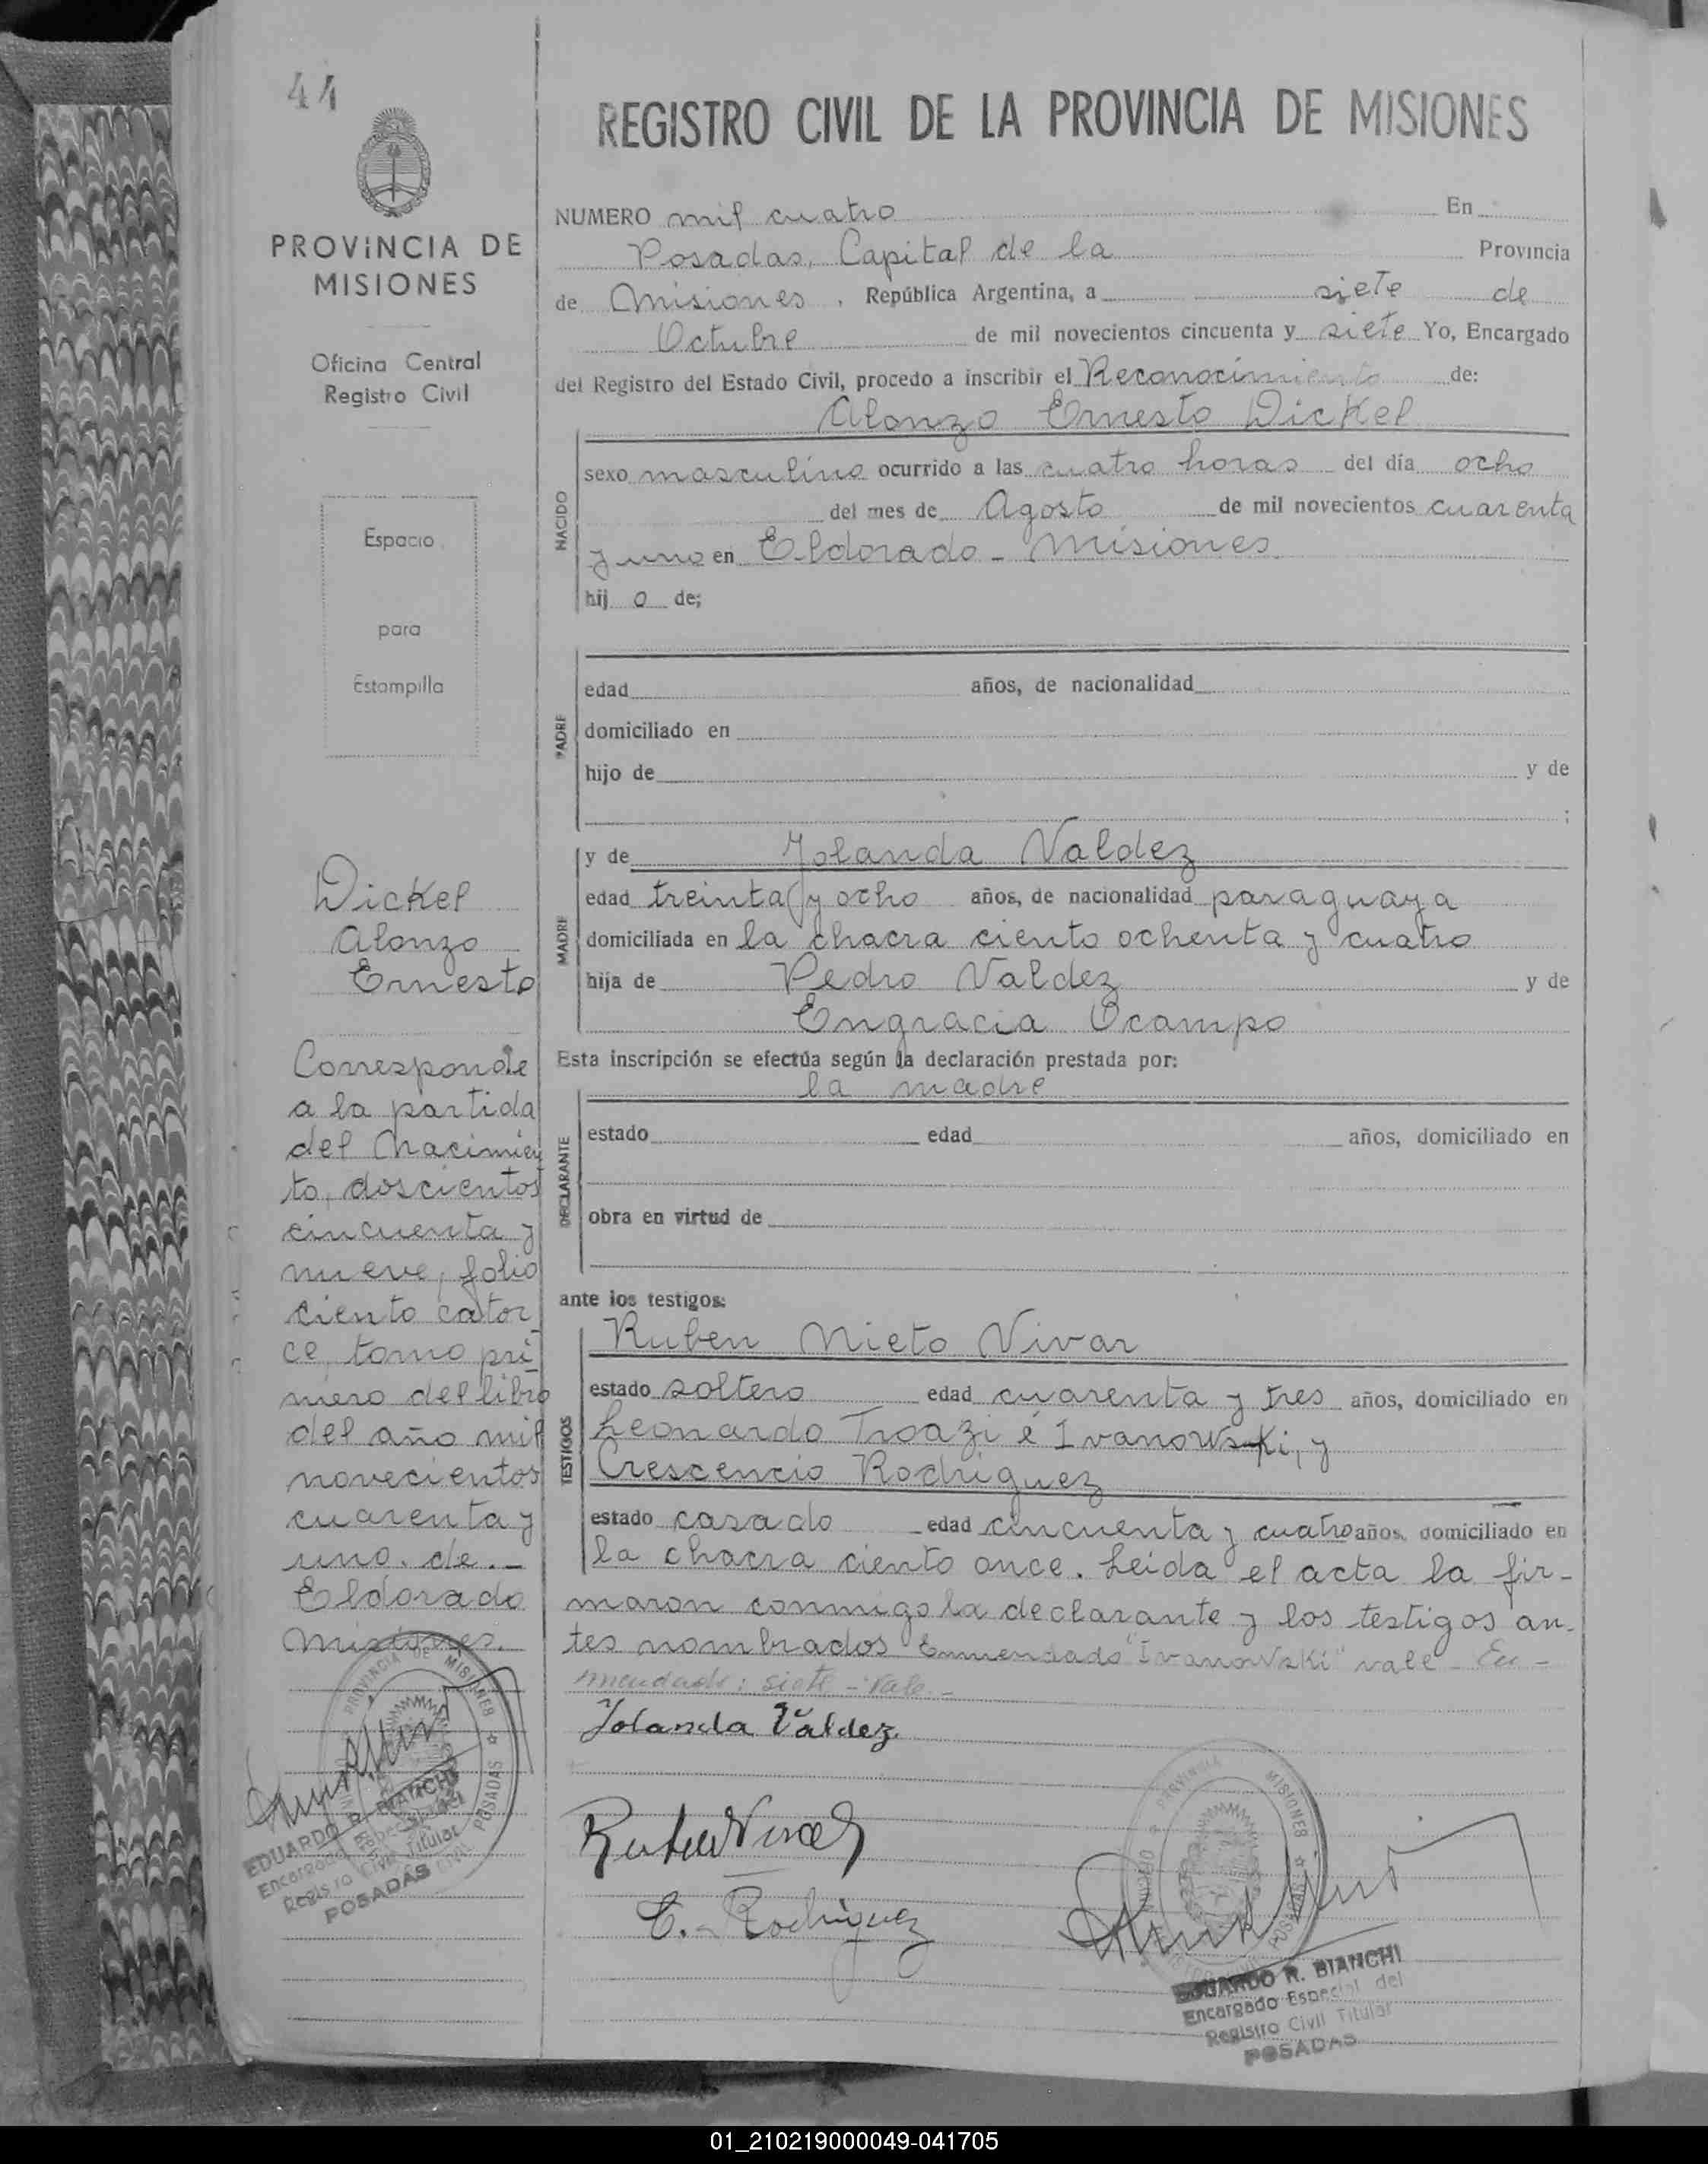 44
PROVINCIA DE
MISIONES
Oficina Central
Registro Civil
Espacio
para
Estampilla
Dickel
Alonzo
Ernesto
Corresponde
a la partida
del Nacimien
to, doscientos
cincuenta y
nueve, folio
ciento cator_
ce, tomo pri_
mero del libro
del año mil
novecientos
cuarenta y
uno. de. _
Eldorado
Misiones.
PROVINCIA DE MISIONES
POSADAS
EDUARDO R. BIANCHI
Encargado Especial del
Registro Civil Titular
POSADAS
REGISTRO CIVIL DE LA PROVINCIA DE MISIONES
NUMERO mil cuatro En
Posadas, Capital de la Provincia
de Misiones, República Argentina, a siete de
Octubre de mil novecientos cincuenta y siete Yo, Encargado
del Registro del Estado Civil, procedo a inscribir el Reconocimiento de:
Alonzo Ernesto Dickel
NACIDO
sexo masculino ocurrido a las cuatro horas del día ocho
del mes de Agosto de mil novecientos cuarenta
y uno en Eldorado - Misiones.
hij o de;
PADRE
edad años, de nacionalidad
domiciliado en
hijo de y de
;
MADRE
y de Yolanda Valdez
edad treinta y ocho años, de nacionalidad paraguaya
domiciliada en la chacra ciento ochenta y cuatro
hija de Pedro Valdez y de
Engracia Ocampo
Esta inscripción se efectúa según la declaración prestada por:
la madre
DECLARANTE
estado edad años, domiciliado en
obra en virtud de
ante los testigos:
TESTIGOS
Ruben Nieto Vivar
estado soltero edad cuarenta y tres años, domiciliado en
Leonardo Troazi é Ivanowski, y
Crescencio Rodriguez
estado casado edad cincuenta y cuatro años, domiciliado en
la chacra ciento once. Leida el acta la fir-
maron conmigo la declarante y los testigos an-
tes nombrados Enmendado "Ivanowski" vale - En -
mendado: siete - Vale. -
Yolanda Valdez
C. - Rodriguez
PROVINCIA MISIONES
POSADAS
EDUARDO R. BIANCHI
Encargado Especial del
Registro Civil Titular
POSADAS
01_210219000049-041705